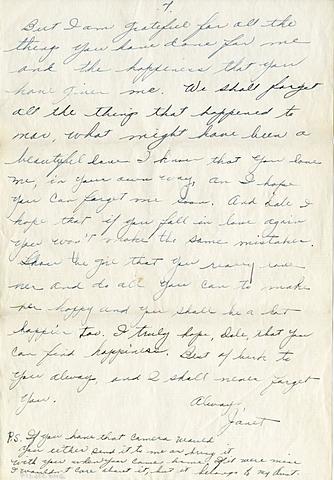 7.
But I am grateful for all the
things you have done for me
and the happiness that you
have given me. We shall forget
all the things that happened to
mar, what might have been a
beautiful love. I know that you love
me, in your own way, an I hope
you can forget me soon. And Dale I
hope that if you fall in love again
you won't make the same mistakes.
Show the girl that you really love
her and do all you can to make
her happy and you shall be a lot
happier too. I truly hope, Dale, that you
can find happiness. Best of luck to
you always, and I shall never forget
you.
Always,
Janet
P.S. If you have that camera would
you either send it to me or bring it
with you when you come home, if it were mine
I wouldn't care about it, but it belongs to my Aunt.